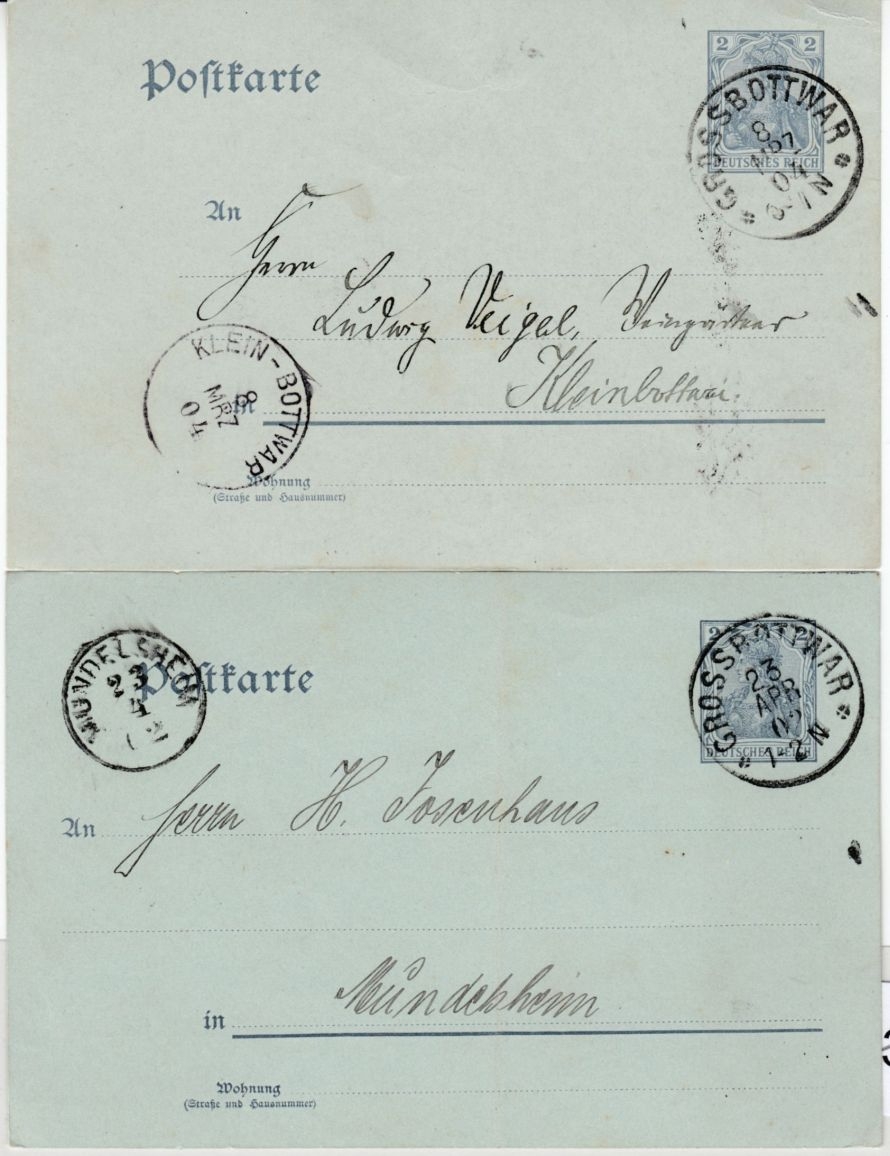 Postkarte
2 2
DEUTSCHES REICH
GROSSBOTTWAR
8
MRZ
04
An
Herrn
Ludwig Veigel, Weingärtner
Kleinbottwar.
in
KLEIN-BOTTWAR
8
MRZ
04
Wohnung
(Straße und Hausnummer)
MUNDELSHEIM
23
4
Postkarte
2 2
DEUTSCHES REICH
GROSSBOTTWAR
23
APR
02
1-2N
An Herrn H. Josenhans
in Mundelsheim
Wohnung
(Straße und Hausnummer)